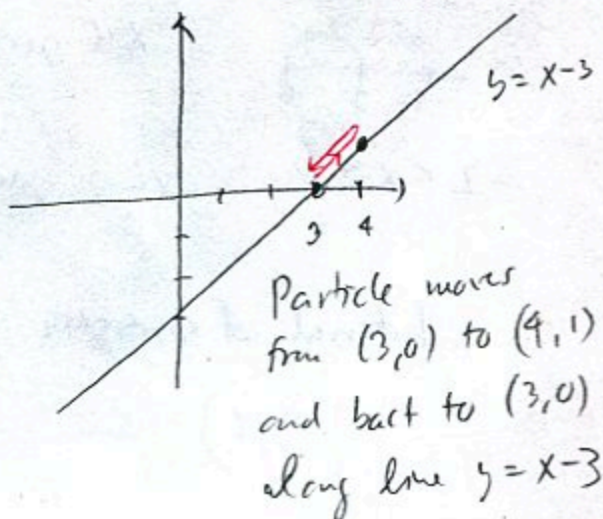 y = x-3
3 4
Particle moves
from (3,0) to (4,1)
and bact to (3,0)
along line y = x-3